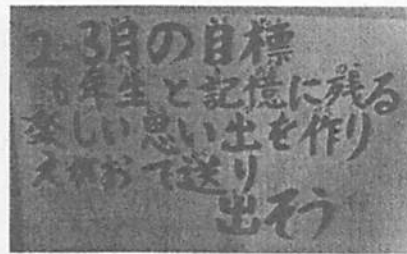 2・3月の目標
6年生と記憶に残る
楽しい思い出を作り
えがおで送り
出そう